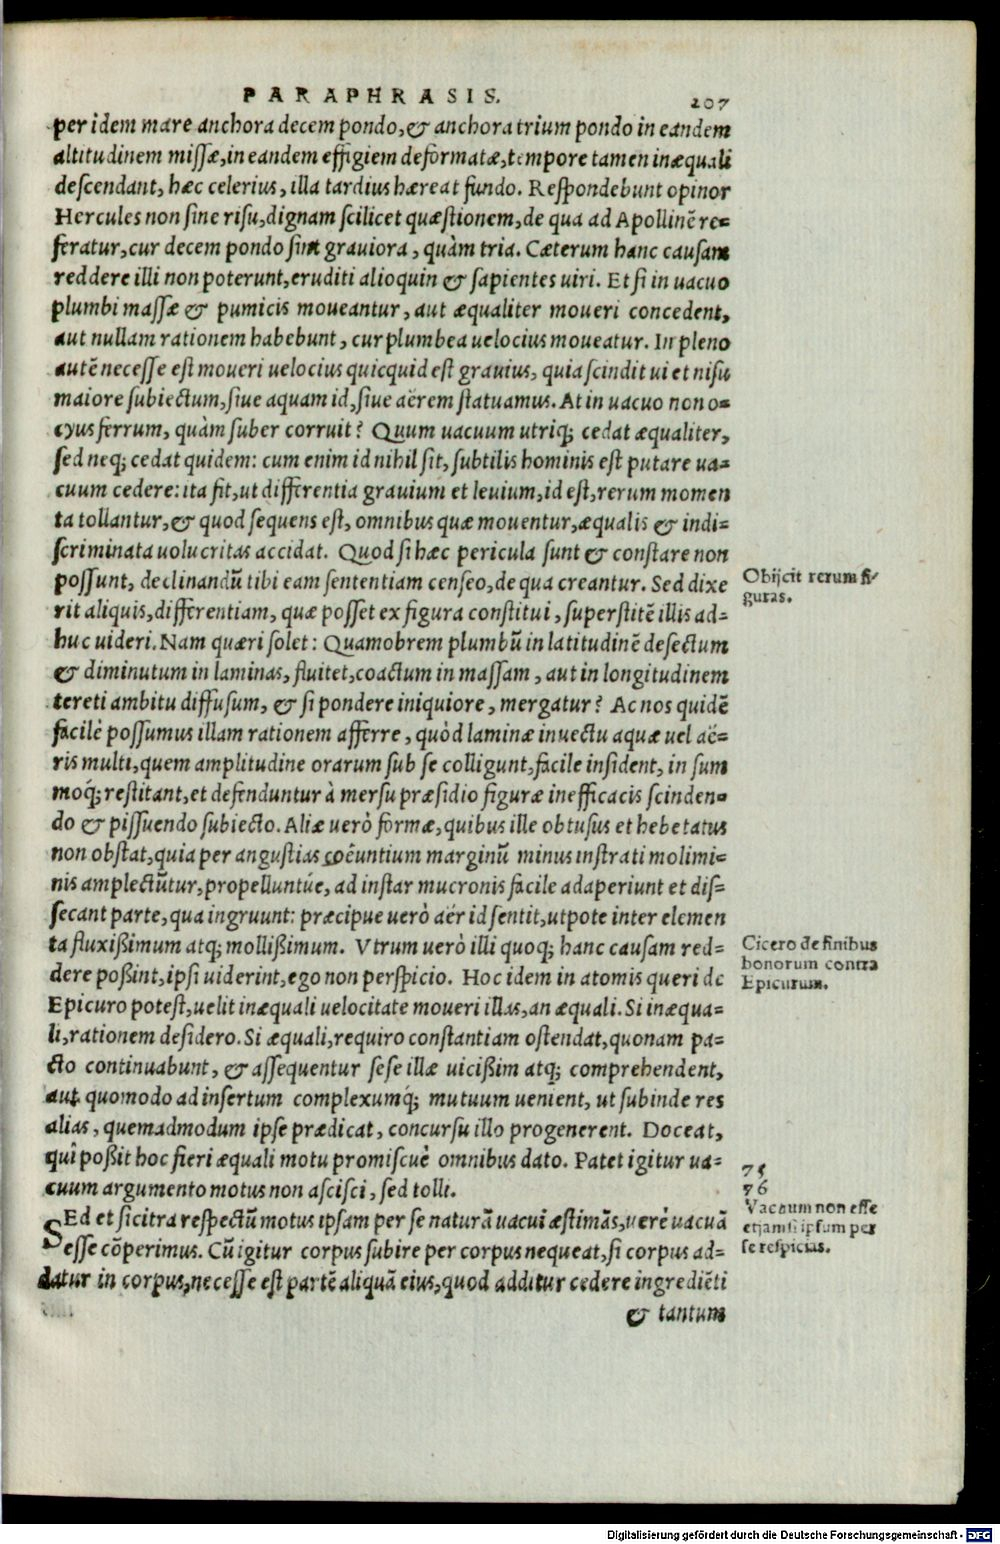 PARAPHRASIS. 207
per idem mare anchora decem pondo, & anchora trium pondo in eandem
altitudinem missæ, in eandem effigiem deformatæ, tempore tamen inæquali
descendant, hæc celerius, illa tardius hæreat fundo. Respondebunt opinor
Hercules non sine risu, dignam scilicet quæstionem, de qua ad Apollinẽ re=
feratur, cur decem pondo sint grauiora, quàm tria. Cæterum hanc causam
reddere illi non poterunt, eruditi alioquin & sapientes uiri. Et si in uacuo
plumbi massæ & pumicis moueantur, aut æqualiter moueri concedent,
aut nullam rationem habebunt, cur plumbea uelocius moueatur. In pleno
autẽ necesse est moueri uelocius quicquid est grauius, quia scindit ui et nisu
maiore subiectum, siue aquam id, siue aërem statuamus. At in uacuo non o=
cyus ferrum, quàm suber corruit? Quum uacuum utriq; cedat æqualiter,
sed neq; cedat quidem: cum enim id nihil sit, subtilis hominis est putare ua=
cuum cedere: ita fit, ut differentia grauium et leuium, id est, rerum momen
ta tollantur, & quod sequens est, omnibus quæ mouentur, æqualis & indi=
scriminata uolucritas accidat. Quod si hæc pericula sunt & constare non
possunt, declinandũ tibi eam sententiam censeo, de qua creantur. Sed dixe
rit aliquis, differentiam, quæ posset ex figura constitui, superstitẽ illis ad=
huc uideri. Nam quæri solet: Quamobrem plumbũ in latitudinẽ desectum
& diminutum in laminas, fluitet, coactum in massam, aut in longitudinem
tereti ambitu diffusum, & si pondere iniquiore, mergatur? Ac nos quidẽ
facilè possumus illam rationem afferre, quòd laminæ inuectu aquæ uel aë=
ris multi, quem amplitudine orarum sub se colligunt, facile insident, in sum
moq́; restitant, et defenduntur à mersu præsidio figuræ inefficacis scinden=
do & pissuendo subiecto. Aliæ uerò formæ, quibus ille obtusus et hebetatus
non obstat, quia per angustias coëuntium marginũ minus instrati molimi=
nis amplectũtur, propelluntúe, ad instar mucronis facile adaperiunt et dis=
secant parte, qua ingruunt: præcipue uerò aër id sentit, utpote inter elemen
ta fluxißimum atq; mollißimum. Vtrum uerò illi quoq; hanc causam red=
dere poßint, ipsi uiderint, ego non perspicio. Hoc idem in atomis queri de
Epicuro potest, uelit inæquali uelocitate moueri illas, an æquali. Si inæqua=
li, rationem desidero. Si æquali, requiro constantiam ostendat, quonam pa=
cto continuabunt, & assequentur sese illæ uicißim atq; comprehendent,
aut quomodo ad insertum complexumq́; mutuum uenient, ut subinde res
alias, quemadmodum ipse prædicat, concursu illo progenerent. Doceat,
qui poßit hoc fieri æquali motu promiscuè omnibus dato. Patet igitur ua=
cuum argumento motus non ascisci, sed tolli.
SEd et si citra respectũ motus ipsam per se naturã uacui æstimãs, uerè uacuã
esse cõperimus. Cũ igitur corpus subire per corpus nequeat, si corpus ad=
datur in corpus, necesse est partẽ aliquã eius, quod additur cedere ingrediẽti
& tantum
Obijcit rerum fi-
guras.
Cicero de finibus
bonorum contra
Epicurum.
75
76
Vacuum non esse
etiamsi ipsum per
se respicias.
Digitalisierung gefördert durch die Deutsche Forschungsgemeinschaft - DFG